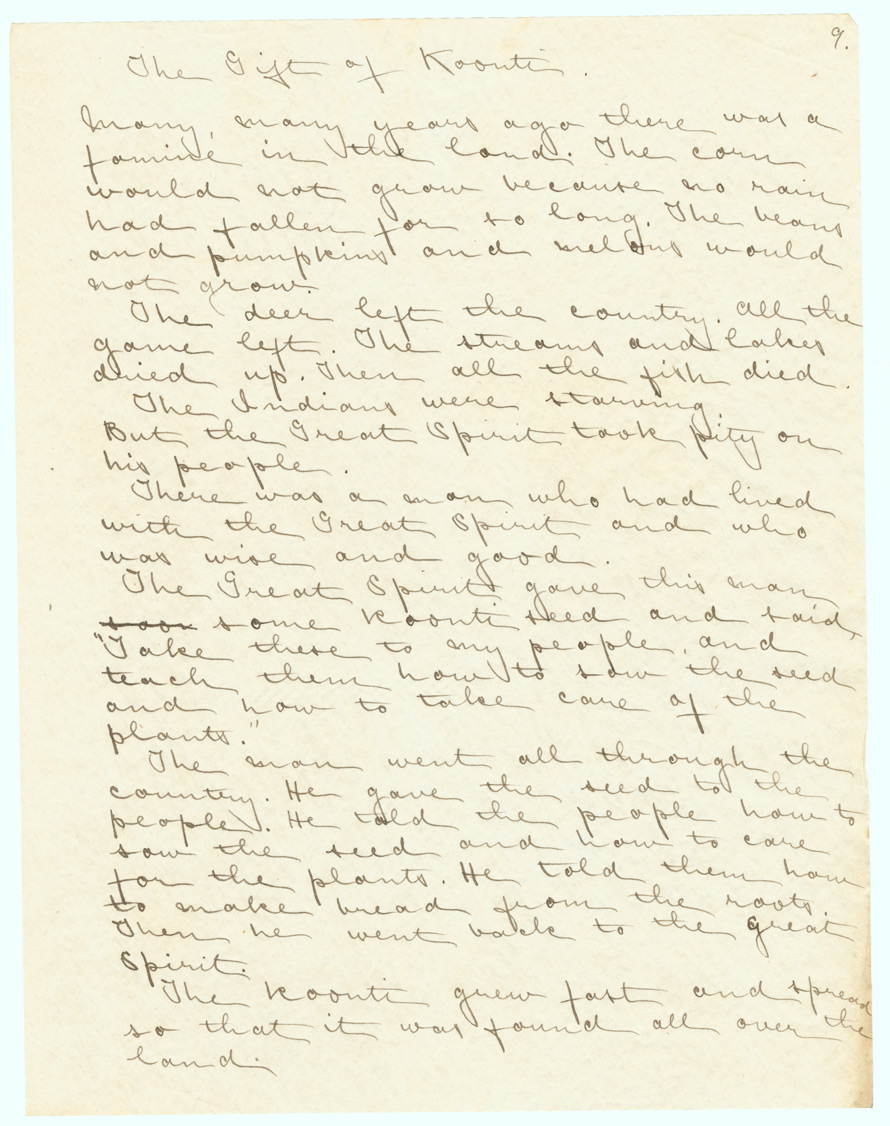 9.
The Gift of Koonti.
Many, many years ago there was a
famine in the land. The corn
would not grow because no rain
had fallen for so long. The beans
and pumpkins and melons would
not grow.
The deer left the country. All the
game left. The streams and lakes
dried up. Then all the fish died.
The Indians were starving.
But the Great Spirit took pity on
his people.
There was a man who had lived
with the Great Spirit and who
was wise and good.
The Great Spirit gave this man
soon some koonti seed and said,
"Take these to my people, and
teach them how to sow the seed
and how to take care of the
plants."
The man went all through the
country. He gave the seed to the
people. He told the people how to
sow the seed and how to care
for the plants. He told them how
to make bread from the roots.
Then he went back to the great
Spirit.
The koonti grew fast and spread
so that it was found all over the
land.